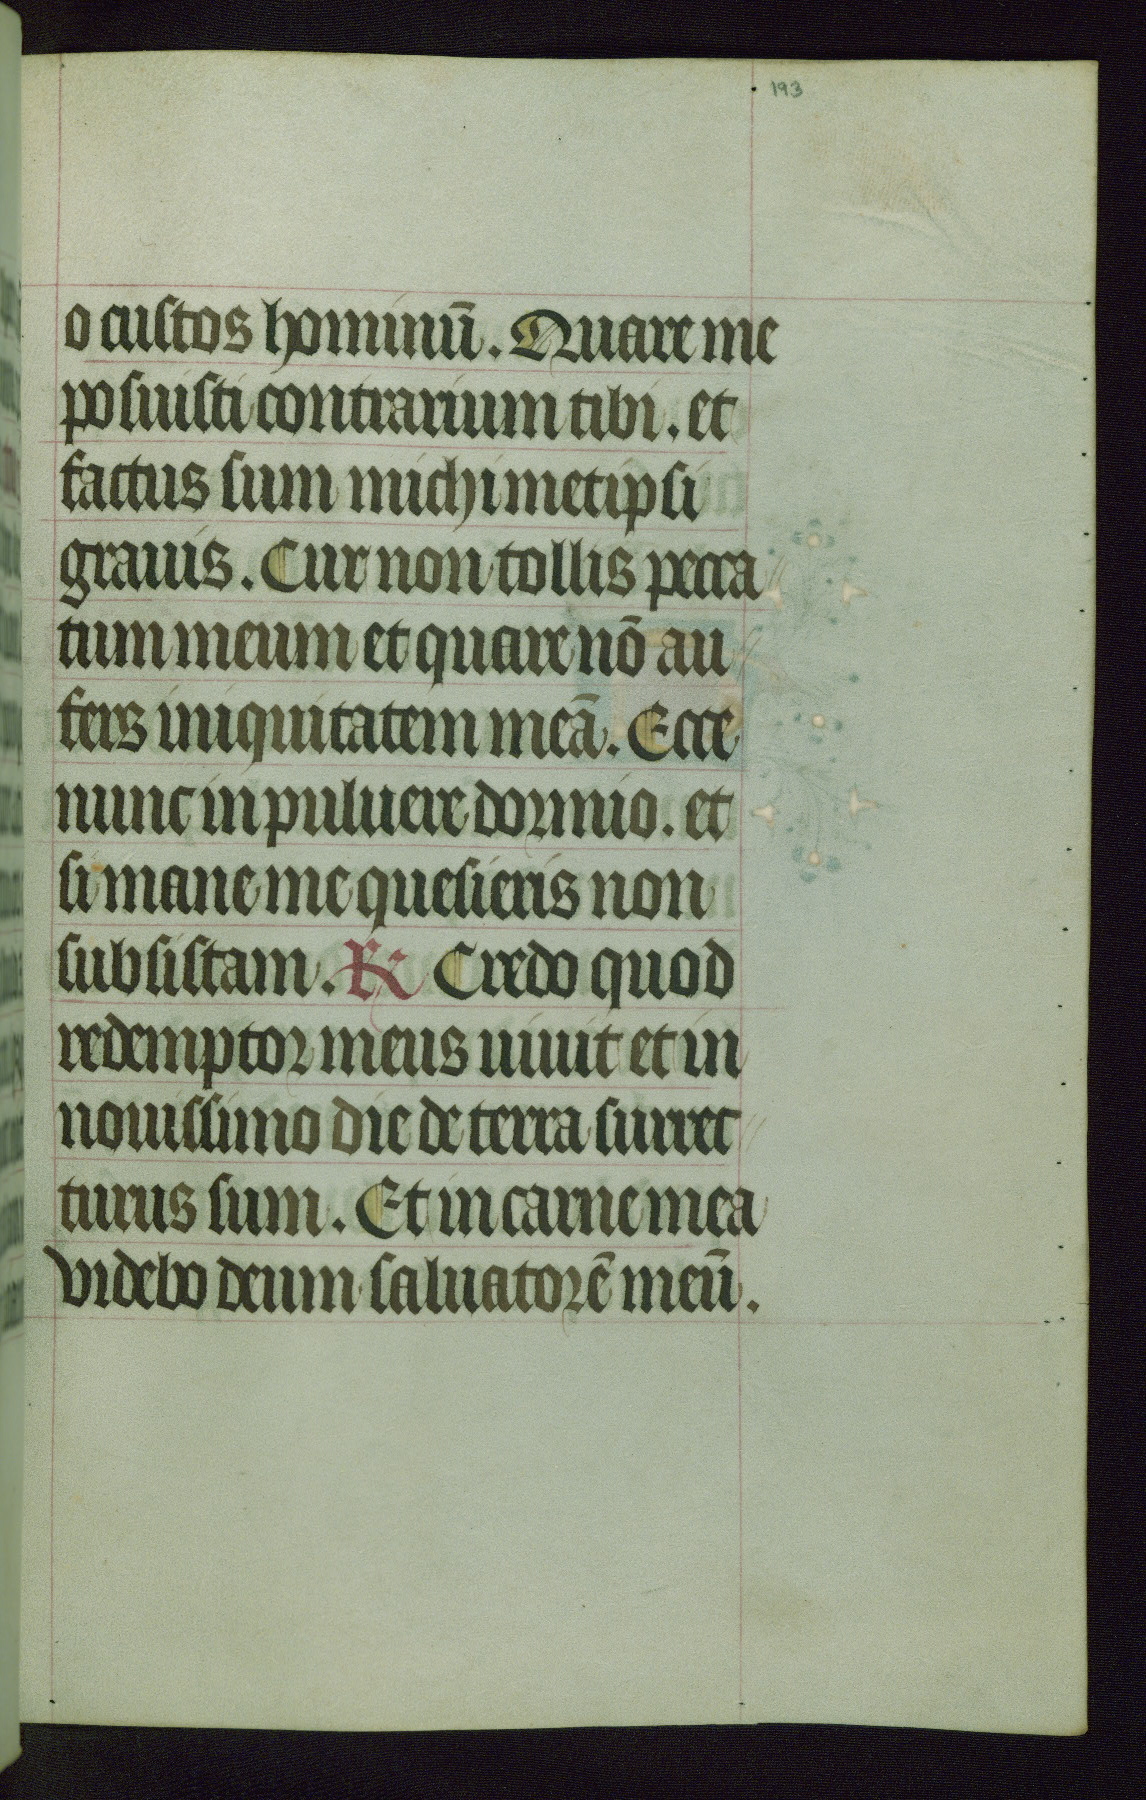 193
o custos hominū. Quare me
posuisti contrarium tibi. et
factus sum michimetipsi
grauis. Cur non tollis pecca
tum meum et quare nō au
fers iniquitatem meā. Ecce
nunc in puluere dormio. et
si mane me quesieris non
subsistam. ℟ Credo quod
redemptor meus uiuit et in
nouissimo die de terra surrec
turus sum. Et in carne mea
videbo deum saluatorē meū.